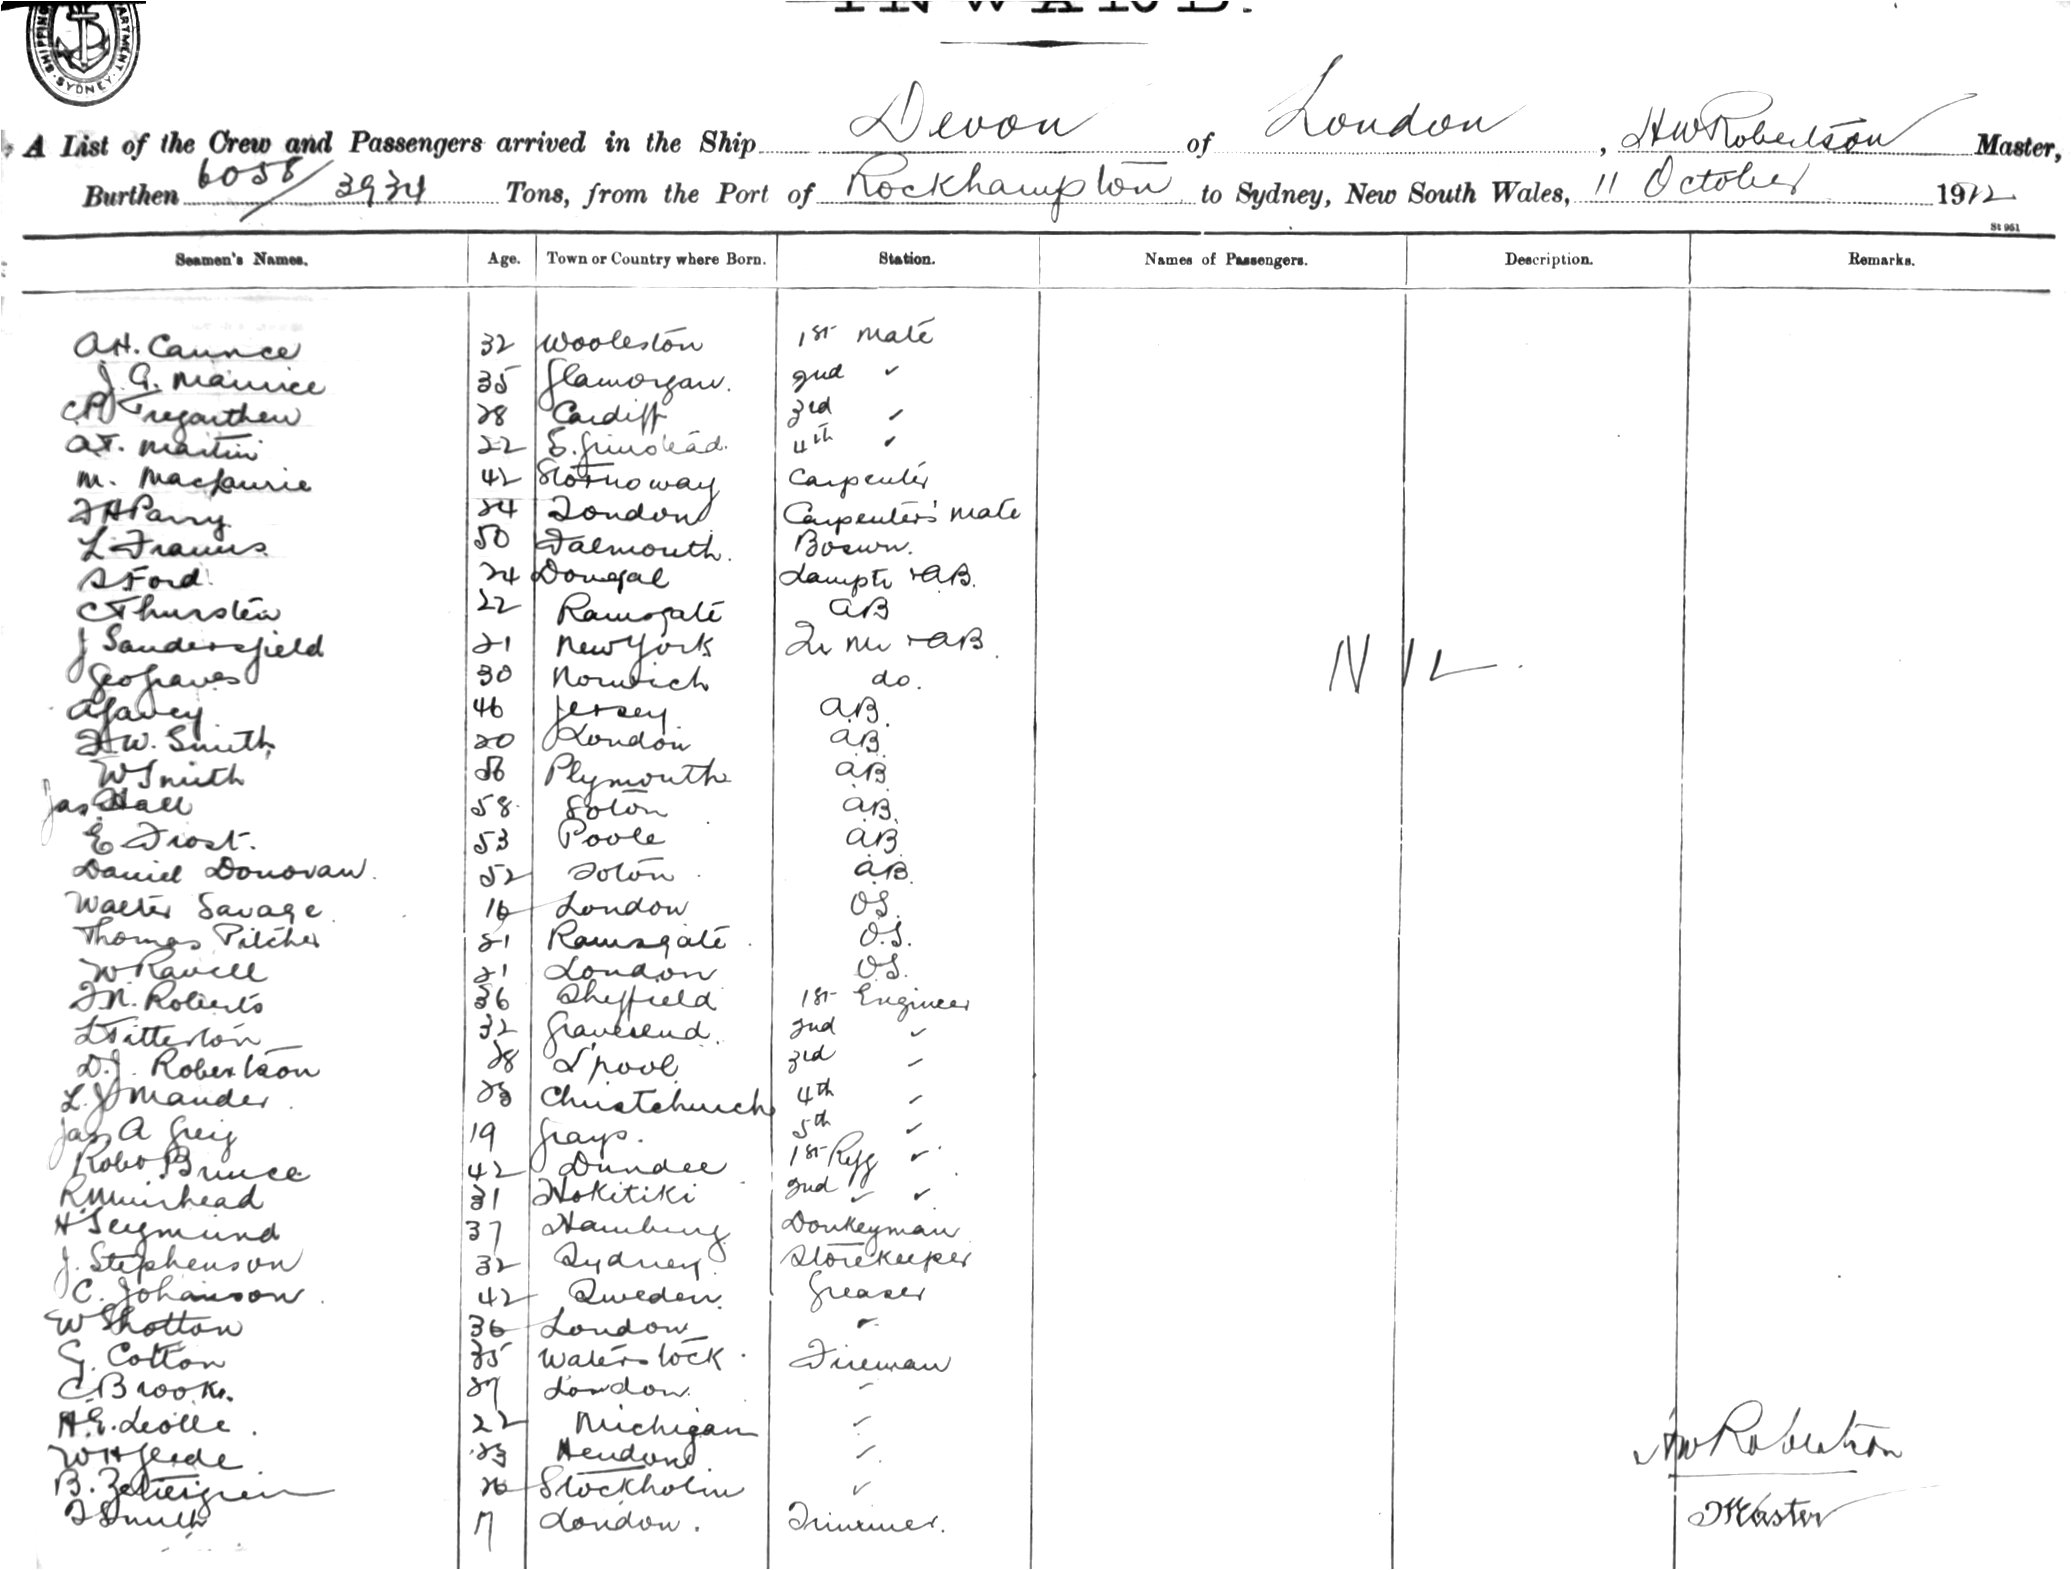 INWARD.
SHIPPING DEPARTMENT. SYDNEY
A List of the Crew and Passengers arrived in the Ship Devon of London, HW Robertson Master,
Burthen 6058/3934 Tons, from the Port of Rockhampton to Sydney, New South Wales, 11 October 1912
St 961
Seamen's Names. Age. Town or Country where Born. Station. Names of Passengers. Description. Remarks.
A.H. Caunce 32 Wooleston 1st Mate
J. G. Maurice 35 Glamorgan. 2nd "
C.P. Tregarthen 28 Cardiff 3rd "
A.T. Martin 22 E. Grinstead. 4th "
M. Mackurie 42 Stornoway Carpenter
Parry 24 London Carpenters' Mate
L. Francis 50 Falmouth. Boswn.
S Ford. 24 Donegal Lamptr + AB.
C Thurston 22 Ramsgate AB
J Sandersfield 21 New York Qr Mr + AB.
Geo Graves 30 Norwich do.
A Gavey 46 Jersey. A.B.
H W. Smith 20 London A.B.
W Smith 56 Plymouth A.B.
Jas Hall 58 Soton A.B.
E Frost. 53 Poole A.B.
Daniel Donovan. 52 Soton A.B.
Walter Savage 16 London O.S.
Thomas Pilcher 21 Ramsgate O.S.
W Ravell 21 London O.S.
Roberts 36 Sheffield 1st Engineer
L Titterton 32 Gravesend. 2nd "
D.J. Robertson 28 L'pool 3rd "
L. J Mander. 23 Christchurch 4th "
Jas A Greig 19 Grays. 5th "
Robt Bruce 42 Dundee 1st Rfg "
R Muirhead 31 Hokitiki 2nd " "
H Seigmund 37 Hamburg Donkeyman
J. Stephenson 32 Sydney. Storekeeper
C. Johanson. 42 Sweden. Greaser
W Shotton 36 London "
G. Cotton 35 Waterstock Fireman
C Brooks. 27 London. "
H.E. 22 Michigan "
W H 23 Hendon. "
B. Zettergren 26 Stockholm "
Smith 17 London. Trimmer.
NIL.
HW Robertson
Master